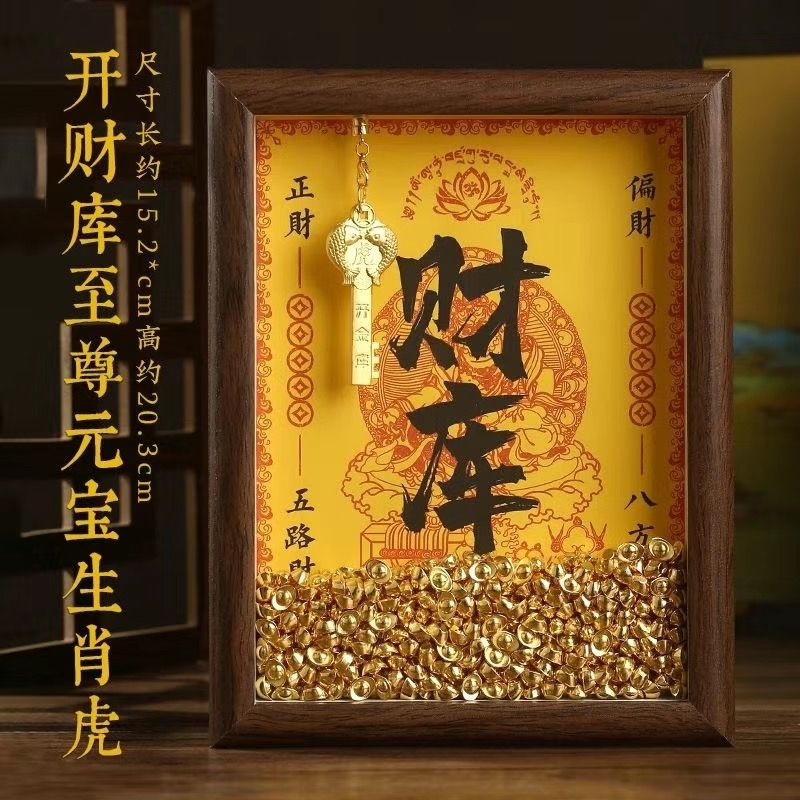 开财库至尊元宝生肖虎
尺寸长约15.2*cm高约20.3cm
正財
偏財
财库
虎
开金库
五路财
八方